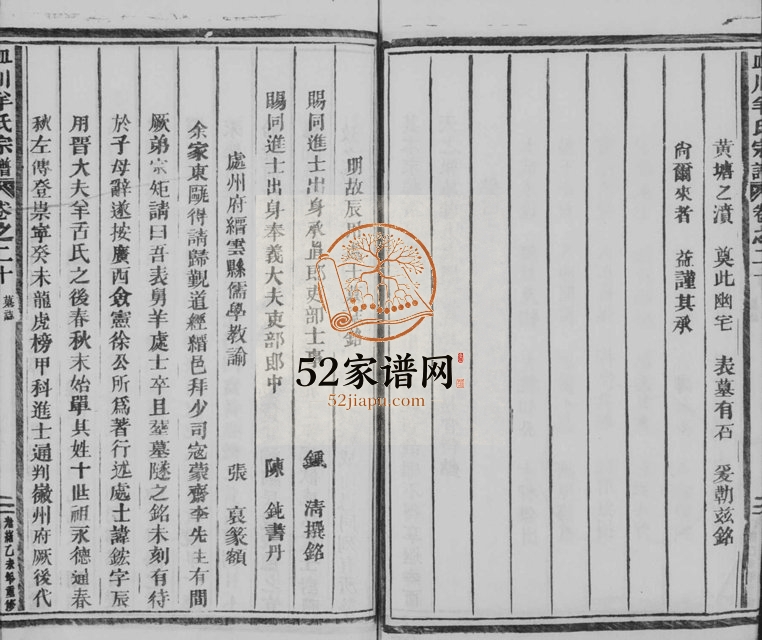 黃塘之濆 奠此幽宅 表墓有石 爰勒玆銘
尙爾來者 益謹其承
川羊氏宗譜 卷之二十
明故辰用處士墓銘
賜同進士出身承直郎吏部主事 鍾 清撰銘
賜同進士出身奉義大夫吏部郎中 陳 鈍書丹
處州府縉雲縣儒學教諭 張 㐮篆額
余家東甌得請歸覲道經縉邑拜少司寇蒙齋李先生有間
厥弟宗矩請曰吾表舅羊處士卒且塟墓隧之銘未刻有待
於子母辭遂按廣西僉憲徐公所爲著行述處士諱鋐字辰
用晋大夫羊舌氏之後春秋末始單其姓十世祖永德通春
秋左傳登崇寧癸未龍虎榜甲科進士通判徽州府厥後代
川羊氏宗譜 卷之二十 墓誌
二 光緒乙未年重修
52家谱网
52jiapu.com